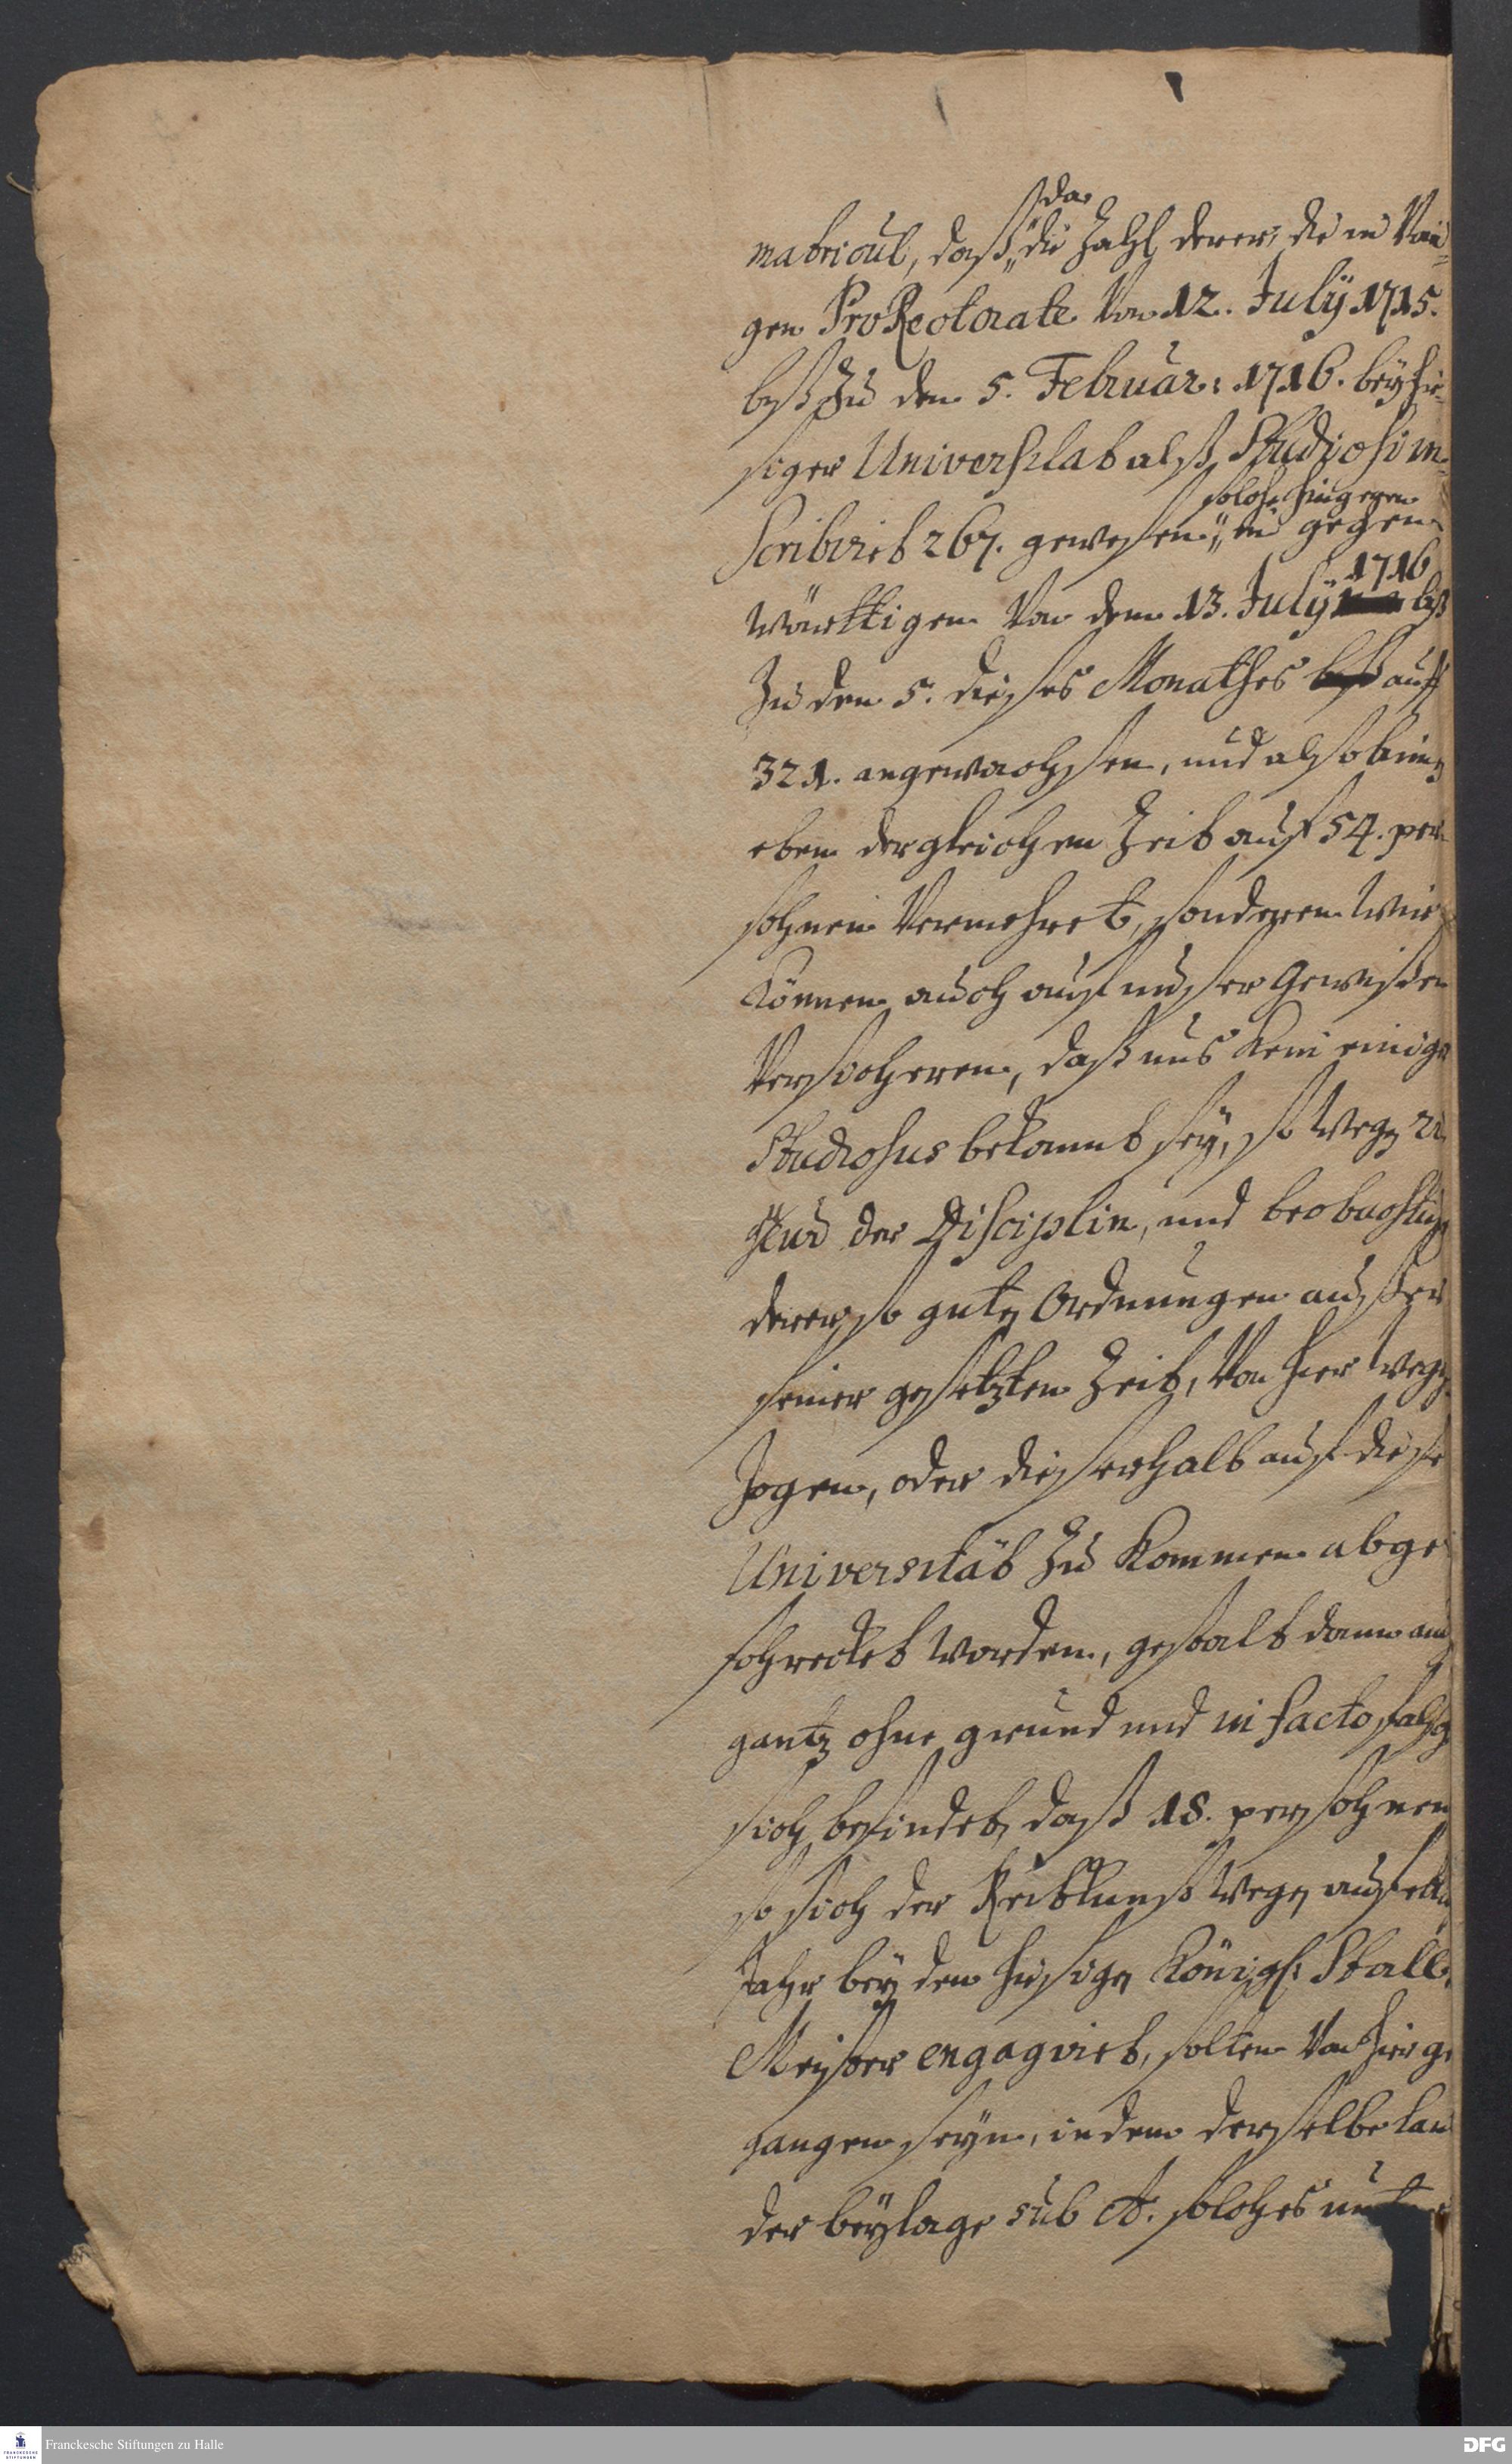 da
matricul, daß die Zahl derer, die in Vori-
gen ProRectorate Von 12. Julÿ 1715.
biß zu den 5. Februar: 1716. beÿ hie-
siger Universitat alß Studiosi in-
solche hingegen
scribiret 267. gewesen, in gegen-
1716
wärttigen Von dem 13. Julÿ biß
Zu den 5. dieses Monathes biß auff
321. angewachsen, und also binnen
eben dergleichen Zeit auf 54. per-
sohnen Vermehret, sonderen Wir
Können auch auf unser Gewissen
Versicheren, daß uns kein einiger
Studiosus bekannt seÿ, so Wegen
der Disciplin, und beobachtung
derer so guten Ordnungen ausser
seiner gesetzten Zeit, Von hier Wegge-
zogen, oder dieserhalb auf diese
Universität Zu Kommen abge-
schrecket Worden, gestalt dann auch
gantz ohne grund und in facto falsch
sich befindet, daß 18. persohnen
so sich der Reitkunst Wegen auf ein
Jahr beÿ den hiesigen Königl: Stall-
Meister engagiret, solten Von hier ge-
gangen seÿn, indem derselbe laut
der beÿlage sub A. solches
Franckesche Stiftungen zu Halle
DFG